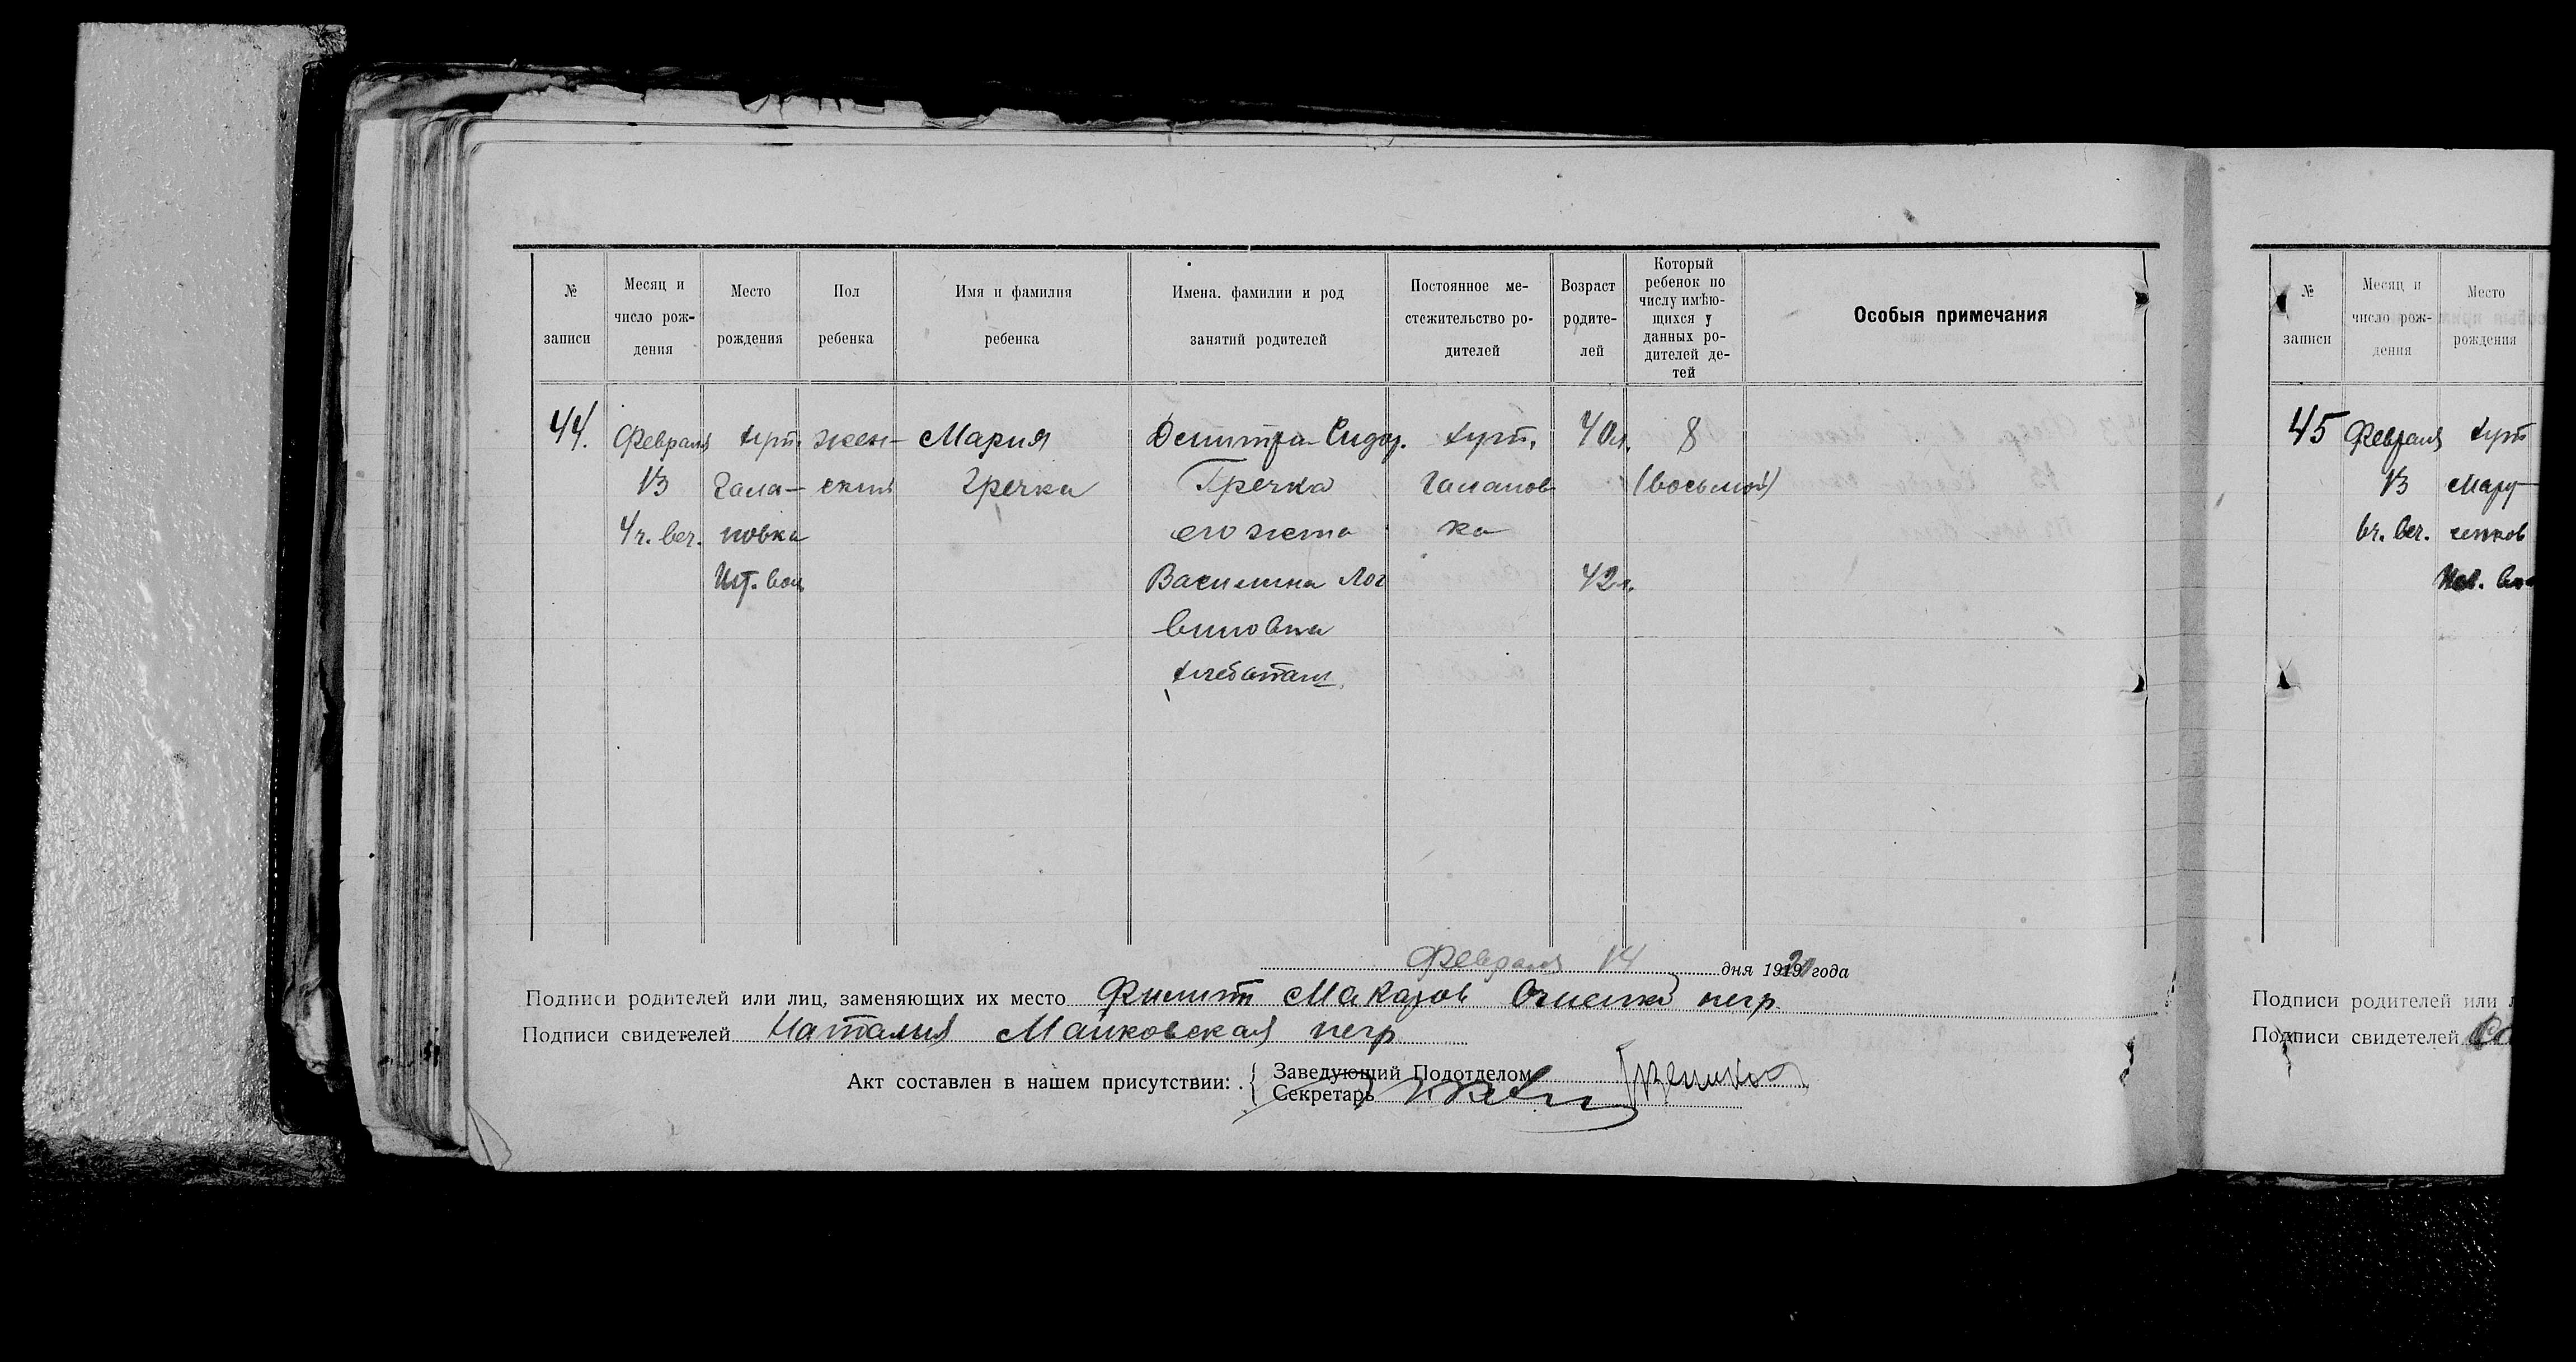 № записи
Месяц и число рождения
Место рождения
Пол ребенка
Имя и фамилия ребенка
Имена. фамилии и род занятий родителей
Постоянное местожительство родителей
Возраст родителей
Который ребенок по числу имѣющихся у данных родителей детей
Особыя примечания
44.
Февраля
13
4 ч. веч.
хут.
Гама-
новка
жен-
ский
Мария
Гречка
Димитрий Сидор.
Гречка
его жена
Василина Лог
виновна
хлебопаш
хут.
Гаманов
ка
40 л.
42 л.
8
(восьмой)
Февраля 14 дня 1920 года
Подписи родителей или лиц, заменяющих их место Филипп Макаров негр
Подписи свидетелей Наталия Майковская негр
Акт составлен в нашем присутствии:
Заведующий Подотделом
Секретарь
№ записи
Месяц и число рождения
Место рождения
45
Февраля
13
6 ч. веч.
хут
Мару
ченков
Подписи родителей или
Подписи свидетелей